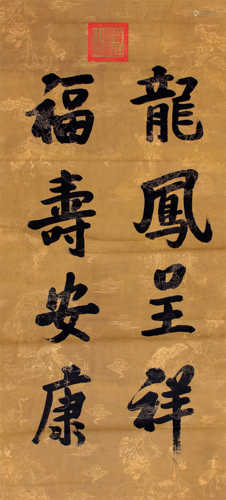 龍鳳呈祥
福壽安康